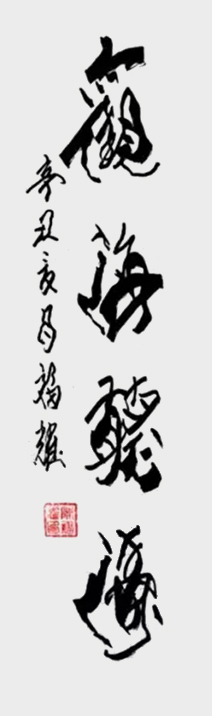 觀海聽濤
辛丑亥月福雄